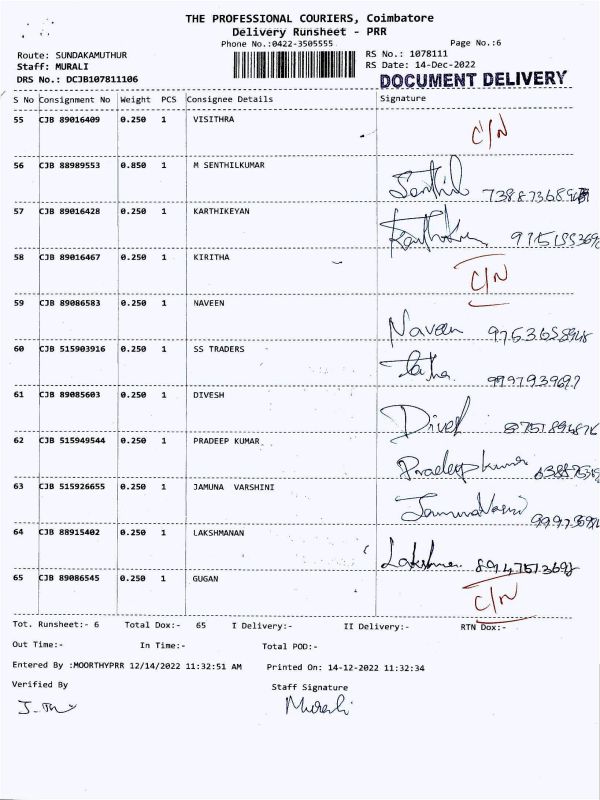 THE PROFESSIONAL COURIERS, Coimbatore
Delivery Runsheet - PRR
Phone No.:0422-3505555 Page No.:6
Route: SUNDAKAMUTHUR RS No.: 1078111
Staff: MURALI RS Date: 14-Dec-2022
DRS No.: DCJB107811106 DOCUMENT DELIVERY
S No Consignment No Weight PCS Consignee Details Signature
55 CJB 89016409 0.250 1 VISITHRA C/N
56 CJB 88989553 0.850 1 M SENTHILKUMAR Senthil
57 CJB 89016428 0.250 1 KARTHIKEYAN
58 CJB 89016467 0.250 1 KIRITHA C/N
59 CJB 89086583 0.250 1 NAVEEN Naveen
60 CJB 515903916 0.250 1 SS TRADERS
61 CJB 89085603 0.250 1 DIVESH
62 CJB 515949544 0.250 1 PRADEEP KUMAR Pradeepkumar
63 CJB 515926655 0.250 1 JAMUNA VARSHINI
64 CJB 88915402 0.250 1 LAKSHMANAN
65 CJB 89086545 0.250 1 GUGAN C/N
Tot. Runsheet:- 6 Total Dox:- 65 I Delivery:- II Delivery:- RTN Dox:-
Out Time:- In Time:- Total POD:-
Entered By :MOORTHYPRR 12/14/2022 11:32:51 AM Printed On: 14-12-2022 11:32:34
Verified By Staff Signature
Murali